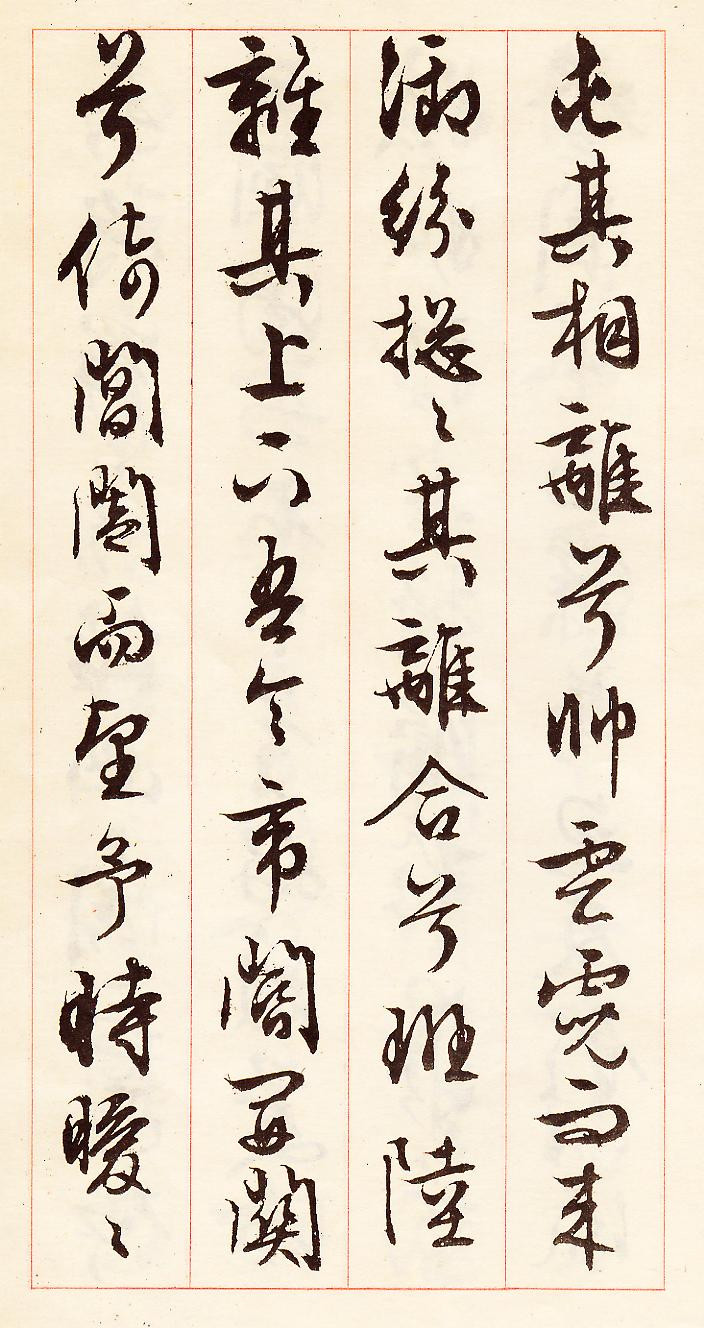 屯其相離兮帥雲霓而來
御紛揔〻其離合兮班陸
離其上下吾令帝閽開關
兮倚閶闔而望予時曖〻